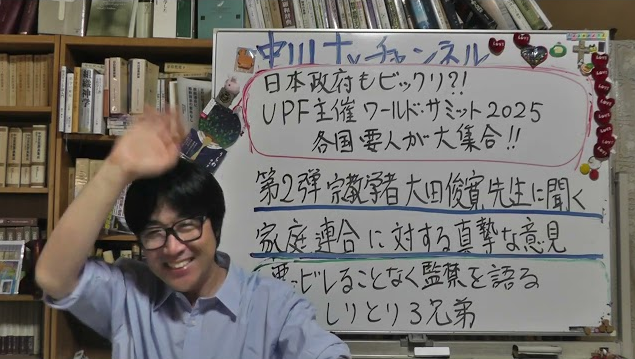 中川TVチャンネル
日本政府もビックリ?!
UPF主催 ワールド・サミット2025
各国要人が大集合!!
第2弾 宗教学者 大田俊寛先生に聞く
家庭連合に対する真摯な意見
ビレることなく監禁を語る
しりとり3兄弟
組織神学